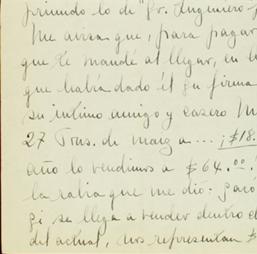 primido lo de "Sr. Ingeniero
Me avisa que, para pagar
que te mandé al llegar, en l
que había dado él su firma
su íntimo amigo y casero M
27 Tons. de maíz a ... ¡$18.
año lo vendimos a $64.00!
la rabia que me dio: saco
si se llega a vender dentro d
del actual, nos representan $